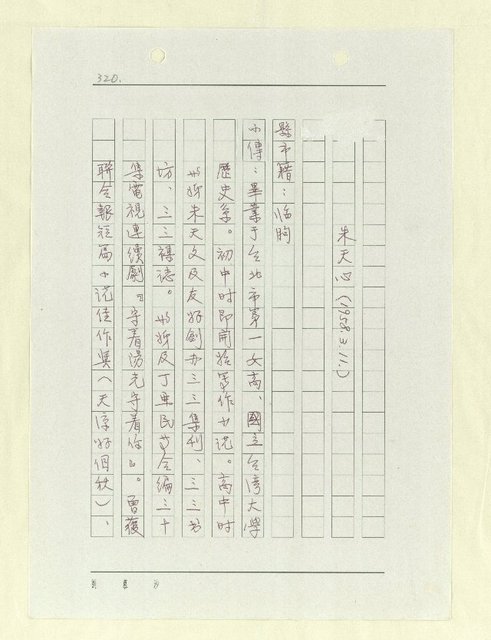 320.
朱天心 (1958.3.11.)
縣市籍：临朐
小傳：畢業于台北市第一女高、國立台灣大學
歷史系。初中时即開始寫作小说。高中时
与姊朱天文及友好創办三三集刊、三三书
坊、三三襍誌。与姊及丁亜民等合編三十
集電視連續劇『守着陽光守着你』。曾獲
聯合報短篇小说佳作奖（天凉好個秋）、